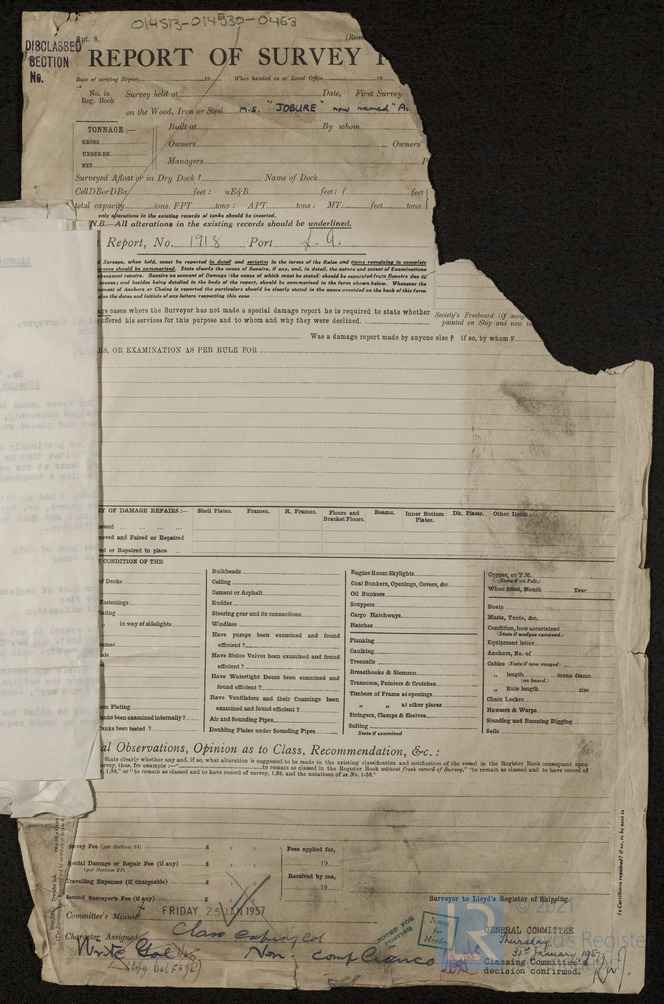 014513-014530-0463
Rpt. 8.
DISCLASSED
SECTION
No.
REPORT OF SURVEY
Date of writing Report 19 When handed in at Local Office 19
No. in
Reg. Book
Survey held at Date, First Survey
on the Wood, Iron or Steel m.s. "JOBURE" now named "A.
TONNAGE :—
GROSS
UNDER DK
NET
Built at By whom
Owners Owners'
Managers P
Surveyed Afloat or in Dry Dock ? Name of Dock
CellDBorDBa feet : uE&B feet : f feet
total capacity tons. FPT tons : APT tons : MT feet tons.
only alterations in the existing records of tanks should be inserted.
N.B.—All alterations in the existing records should be underlined.
Report, No. 1918 Port L.A.
Surveys, when held, must be reported in detail and seriatim in the terms of the Rules and items remaining to complete
should be summarised. State clearly the cause of Repairs, if any, and, in detail, the nature and extent of Examinations
Repairs on account of Damage (the cause of which must be stated) should be separated from Repairs due to
causes; and besides being detailed in the body of the report, should be summarised in the form shown below. Whenever the
of Anchors or Chains is reported the particulars should be clearly stated in the space provided on the back of this form
also the dates and initials of any letters respecting this case
cases where the Surveyor has not made a special damage report he is required to state whether
offered his services for this purpose and to whom and why they were declined.
Society's Freeboard (if assig
painted on Ship and now
Was a damage report made by anyone else ? if so, by whom ?
RS, OR EXAMINATION AS PER RULE FOR
Y OF DAMAGE REPAIRS :—
Shell Plates. Frames. R. Frames. Floors and Bracket Floors. Beams. Inner Bottom Plates. Dk. Plates. Other Items :
ewed
oved and Faired or Repaired
d or Repaired to place
CONDITION OF THE
of Decks
Fastenings
ating
" in way of sidelights
ames
m Plating
anks been examined internally ?
anks been tested ?
Bulkheads
Ceiling
Cement or Asphalt
Rudder
Steering gear and its connections
Windlass
Have pumps been examined and found
efficient ?
Have Sluice Valves been examined and found
efficient ?
Have Watertight Doors been examined and
found efficient ?
Have Ventilators and their Coamings been
examined and found efficient ?
Air and Sounding Pipes
Doubling Plates under Sounding Pipes
Engine Room Skylights
Coal Bunkers, Openings, Covers, &c.
Oil Bunkers
Scuppers
Cargo Hatchways
Hatches
Planking
Caulking
Treenails
Breasthooks & Stemson
Transoms, Pointers & Crutches
Timbers of Frame at openings
" " at other places
Stringers, Clamps & Shelves
Salting
State if examined
Copper, or Y.M.
(State if on Felt.)
When fitted, Month Year
Boats
Masts, Yards, &c.
Condition, how ascertained
(State if wedges removed.)
Equipment letter
Anchors, No. of
Cables (State if now ranged)
" length mean diamr.
(on board.)
" Rule length size
Chain Locker
Hawsers & Warps
Standing and Running Rigging
Sails
al Observations, Opinion as to Class, Recommendation, &c. :
State clearly whether any, and if so, what alteration is suggested to be made in the existing classification and notification of the vessel in the Register Book consequent upon
urvey, thus, for example :—" to remain as classed in the Register Book without fresh record of Survey," "to remain as classed and to have record of
1,38," or "to remain as classed and to have record of survey, 1,38, and the notations of ss No. 1-38."
Survey Fee (per Section 24) £ : :
Special Damage or Repair Fee (if any) £ : :
(per Section 24)
Travelling Expenses (if chargeable) £ : :
Second Surveyor's Fee (if any) £ : :
Fees applied for,
19
Received by me,
19
Surveyor to Lloyd's Register of Shipping.
Is Certificate required? if so, to be sent to
Committee's Minute FRIDAY 25 JAN 1957
Character Assigned
Class expunged
Non. compliance
NOTED FOR
POSTING
Noted
for
Header
GENERAL COMMITTEE
Thursday
31st January, 1957
Classing Committee's
decision confirmed.
© 2021
Lloyd's Register